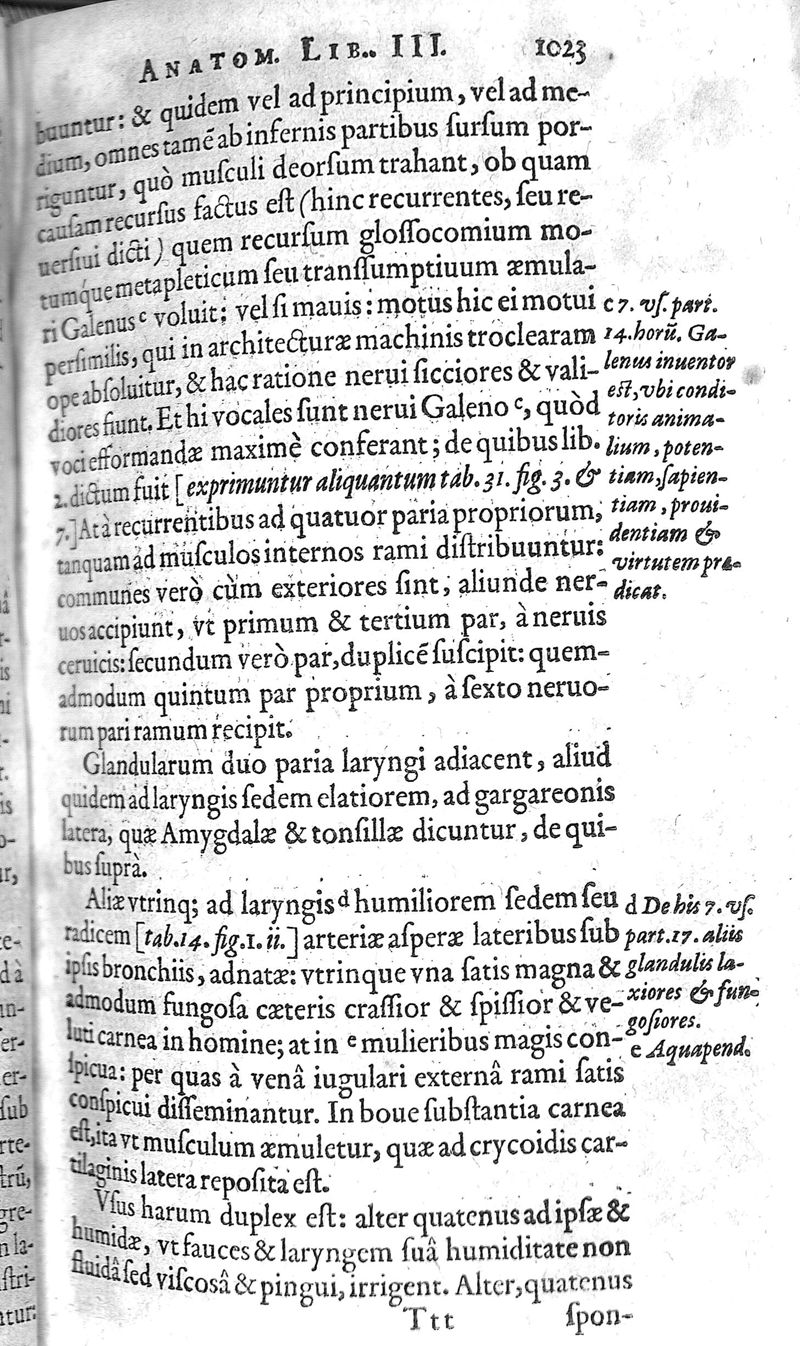 ANATOM. LIB. III. 1023
buuntur: & quidem vel ad principium, vel ad me-
dium, omnes tamē ab infernis partibus ſurſum por-
riguntur, quò muſculi deorſum trahant, ob quam
cauſam recurſus factus eſt (hinc recurrentes, ſeu re-
uerſiui dicti) quem recurſum gloſſocomium mo-
tumque metapleticum ſeu tranſſumptiuum æmula-
ri Galenus ᶜ voluit: vel ſi mauis: motus hic ei motui
perſimilis, qui in architecturæ machinis troclearam
ope abſoluitur, & hac ratione nerui ſicciores & vali-
diores fiunt. Et hi vocales ſunt nerui Galeno ᶜ, quòd
voci efformandæ maximè conferant; de quibus lib.
2. dictum fuit [exprimuntur aliquantum tab. 31. fig. 3. &
7.] At à recurrentibus ad quatuor paria propriorum,
tanquam ad muſculos internos rami diſtribuuntur:
communes verò cùm exteriores ſint, aliunde ner-
uos accipiunt, vt primum & tertium par, à neruis
ceruicis: ſecundum verò par, duplicē ſuſcipit: quem-
admodum quintum par proprium, à ſexto neruo-
rum pari ramum recipit.
Glandularum duo paria laryngi adiacent, aliud
quidem ad laryngis ſedem elatiorem, ad gargareonis
latera, quæ Amygdalæ & tonſillæ dicuntur, de qui-
bus ſuprà.
Aliæ vtrinq; ad laryngis ᵈ humiliorem ſedem ſeu
radicem [tab. 14. fig. 1. ii.] arteriæ aſperæ lateribus ſub
ipſis bronchiis, adnatæ: vtrinque vna ſatis magna &
admodum fungoſa cæteris craſſior & ſpiſſior & ve-
luti carnea in homine; at in ᵉ mulieribus magis con-
ſpicua: per quas à venâ iugulari externâ rami ſatis
conſpicui diſſeminantur. In boue ſubſtantia carnea
eſt, ita vt muſculum æmuletur, quæ ad crycoidis car-
tilaginis latera repoſita eſt.
Vſus harum duplex eſt: alter quatenus ad ipſæ &
humidæ, vt fauces & laryngem ſuâ humiditate non
fluidâ ſed viſcosâ & pingui, irrigent. Alter, quatenus
Ttt ſpon-
c 7. vſ. part.
14. horū. Ga-
lenus inuentor
eſt, vbi condi-
toris anima-
lium, poten-
tiam, ſapien-
tiam, proui-
dentiam &
virtutem præ-
dicat.
d De his 7. vſ.
part. 17. aliis
glandulis la-
xiores & fun-
goſiores.
e Aquapend.